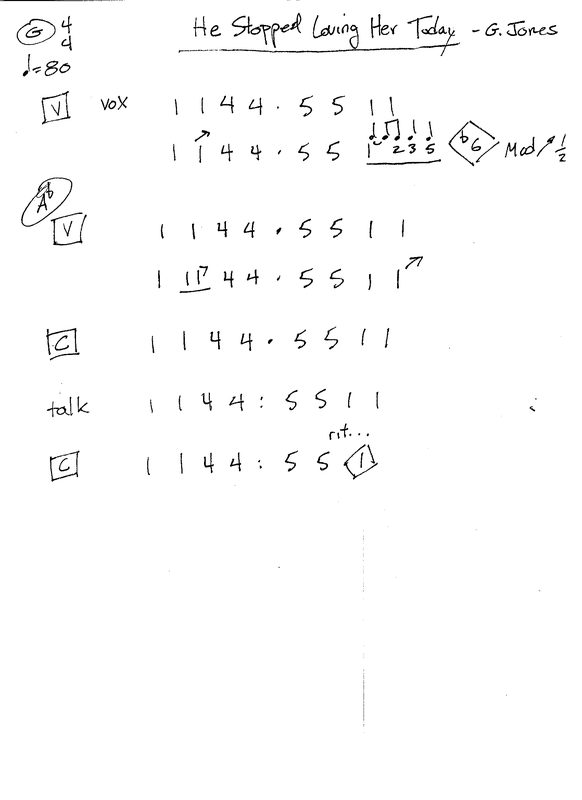 G 4/4 He Stopped Loving Her Today - G. Jones
♩=80
V VOX 1 1 4 4 . 5 5 1 1
1 1↗ 4 4 . 5 5 1 2 3 5 ♭6 Mod ↗ 1/2
A♭
V 1 1 4 4 . 5 5 1 1
1 11↗ 4 4 . 5 5 1 1↗
C 1 1 4 4 . 5 5 1 1
talk 1 1 4 4 : 5 5 1 1
rit...
C 1 1 4 4 : 5 5 1